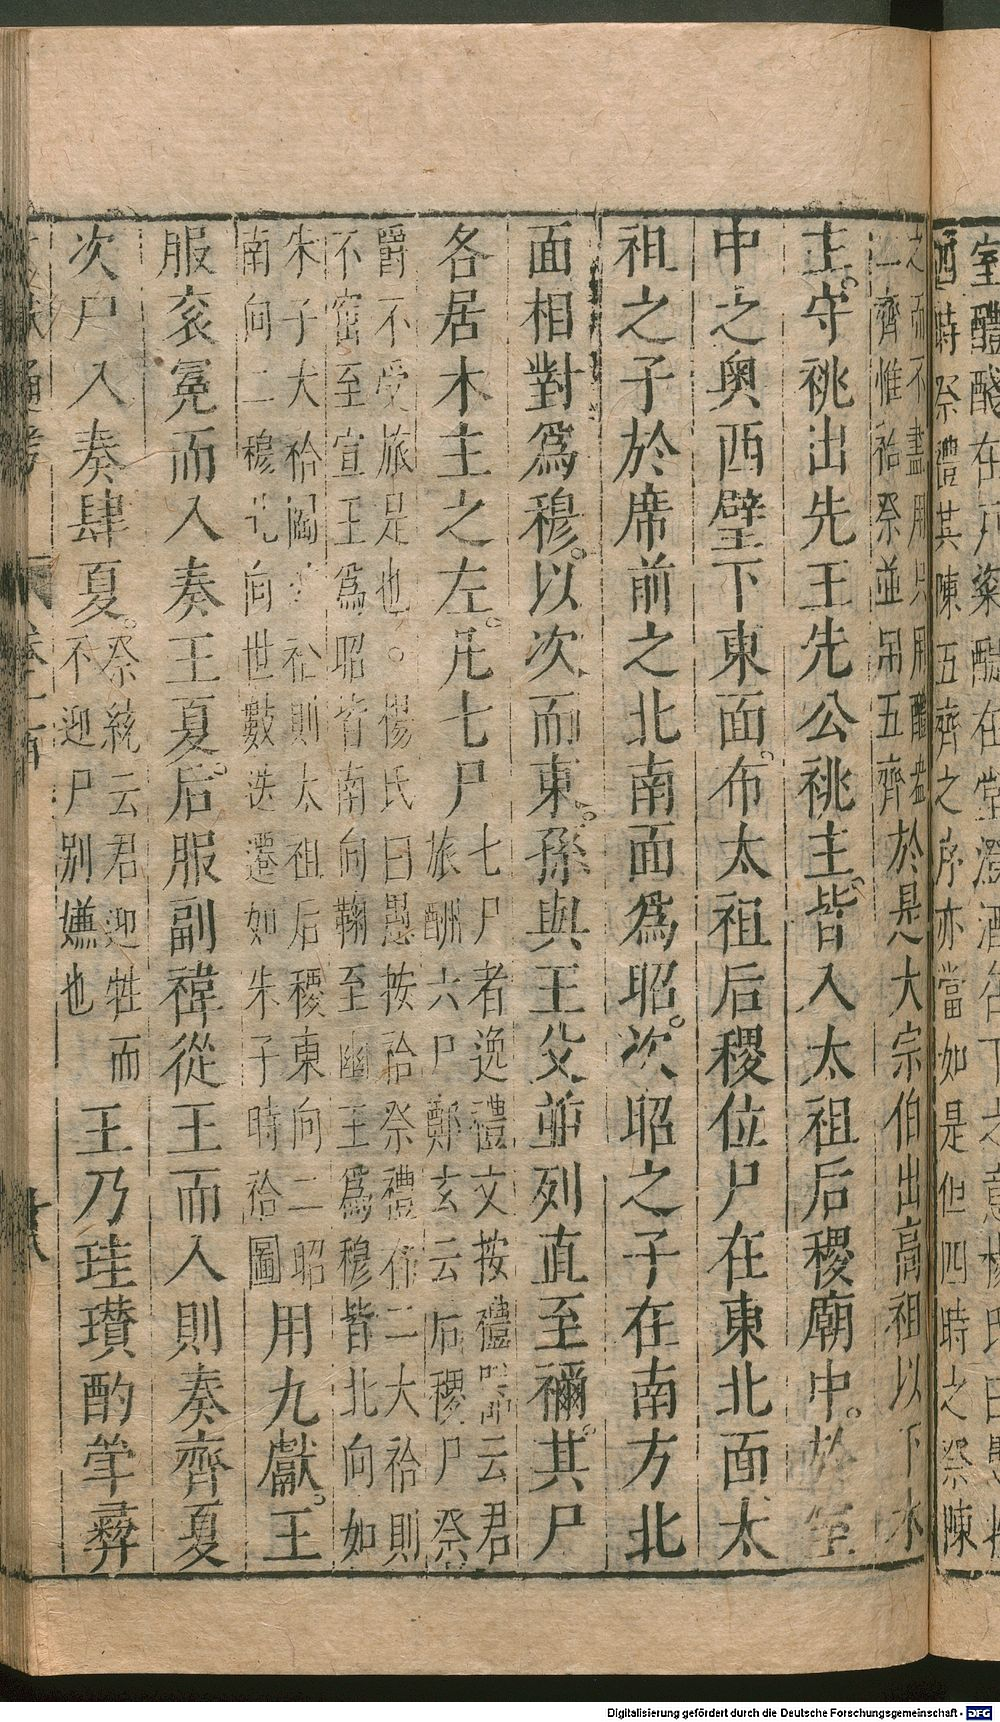 室醴醆在戶粢醍在堂澄酒在下
酉時祭禮其陳五齊之序亦當如是但四時之祭陳
之而不盡用只用醴盎
二齊惟祫祭並用五齊於是大宗伯出高祖以下木
主。守祧出先王先公祧主。皆入太祖后稷廟中。於室
中之奧西壁下東面。布太祖后稷位尸在東北面太
祖之子於席前之北南面爲昭。次昭之子在南方北
面相對爲穆。以次而東。孫與王父並列直至禰。其尸
各居木主之左。凡七尸
七尸者逸禮文按禮器云君
旅酬六尸鄭玄云后稷尸祭
爵不受旅是也。楊氏曰愚按祫祭禮作二大祫則
不窋至宣王爲昭皆南向鞠至幽王爲穆皆北向如
朱子大祫圖 祫則太祖后稷東向二昭
南向二穆北向世數迭遷如朱子時祫圖用九獻。王
服袞冕而入奏王夏。后服副褘從王而入則奏齊夏
次尸入奏肆夏。
祭統云君迎牲而
不迎尸別嫌也
王乃珪瓚酌斝彝
Digitalisierung gefördert durch die Deutsche Forschungsgemeinschaft - DFG